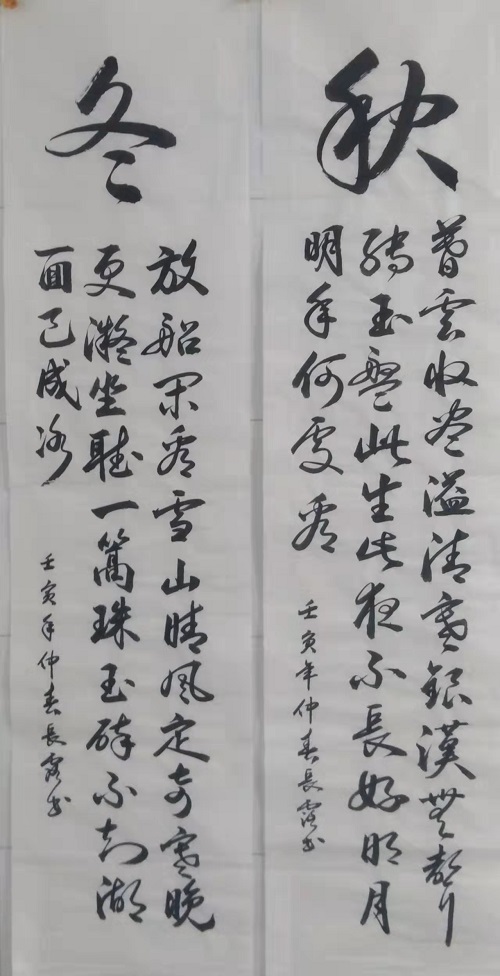 秋
暮雲收盡溢清寒銀漢無聲
轉玉盤此生此夜不長好明月
明年何處看
壬寅年仲春長霞書
冬
放船閑看雪山晴風定奇寒晚
更凝坐聽一篙珠玉碎不知湖
面已成冰
壬寅年仲春長霞書